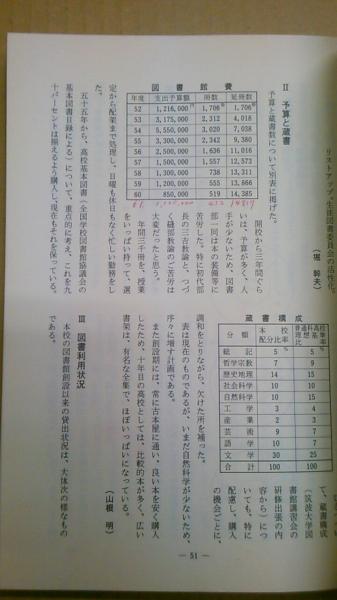 リストアップ、生涯図書委員会の活性化。
（堀 幹夫）
Ⅱ 予算と蔵書
予算と蔵書数について別表に掲げた。
図書館費
年度 支出予算額 冊数 延冊数
52 1,216,000円 1,706冊 1,706冊
53 3,175,000 2,312 4,018
54 5,550,000 3,020 7,038
55 3,300,000 2,342 9,380
56 2,500,000 1,636 11,016
57 1,500,000 1,557 12,573
58 1,300,000 738 13,311
59 1,200,000 555 13,866
60 850,000 519 14,385
開校から三年間ぐら
いは、予算が多く、人
手が少ないため、図書
部一同は本の装備等に
苦労した。特に初代部
長の三吉教論と、つづ
く磯部教論のご苦労は
大変だったと思う。
年間三千冊を、授業
をいっぱい持って、選
定から配架まで処理し、日曜も休日もなく忙しい勤務をし
た。
五十五年から、高校基本図書（全国学校図書館協議会の
基本図書目録による）について、重点的に考え、これを九
十パーセントは揃えるよう購入し、現在もそれを保っている。
蔵書構成
分類 本校配分比率
総記 5 5
哲学宗教 7 9
歴史地理 14 15
社会科学 10 10
自然科学 10 15
工学 3 4
産業 2 3
芸術 9 7
語学 10 7
文学 30 25
合計 100 100
て、蔵書構成
（筑波大学図
書館講習会の
研修出張の内
容から）につ
いても、特に
配慮し、購入
の機会ごとに、
調和をとりながら、欠けた所を補った。
表は現在のものであるが、いまだ自然科学が少ないため、
序々に増す計画である。
また創設期には、常に古本屋に通い、良い本を安く購入
したため、十年目の高校としては、比較的本が多く、広い
書架は、有名な全集で、ほぼいっぱいになっている。
（山根 明）
Ⅲ 図書利用状況
本校の図書館創設以来の貸出状況は、大体次の様なもの
である。
— 51 —